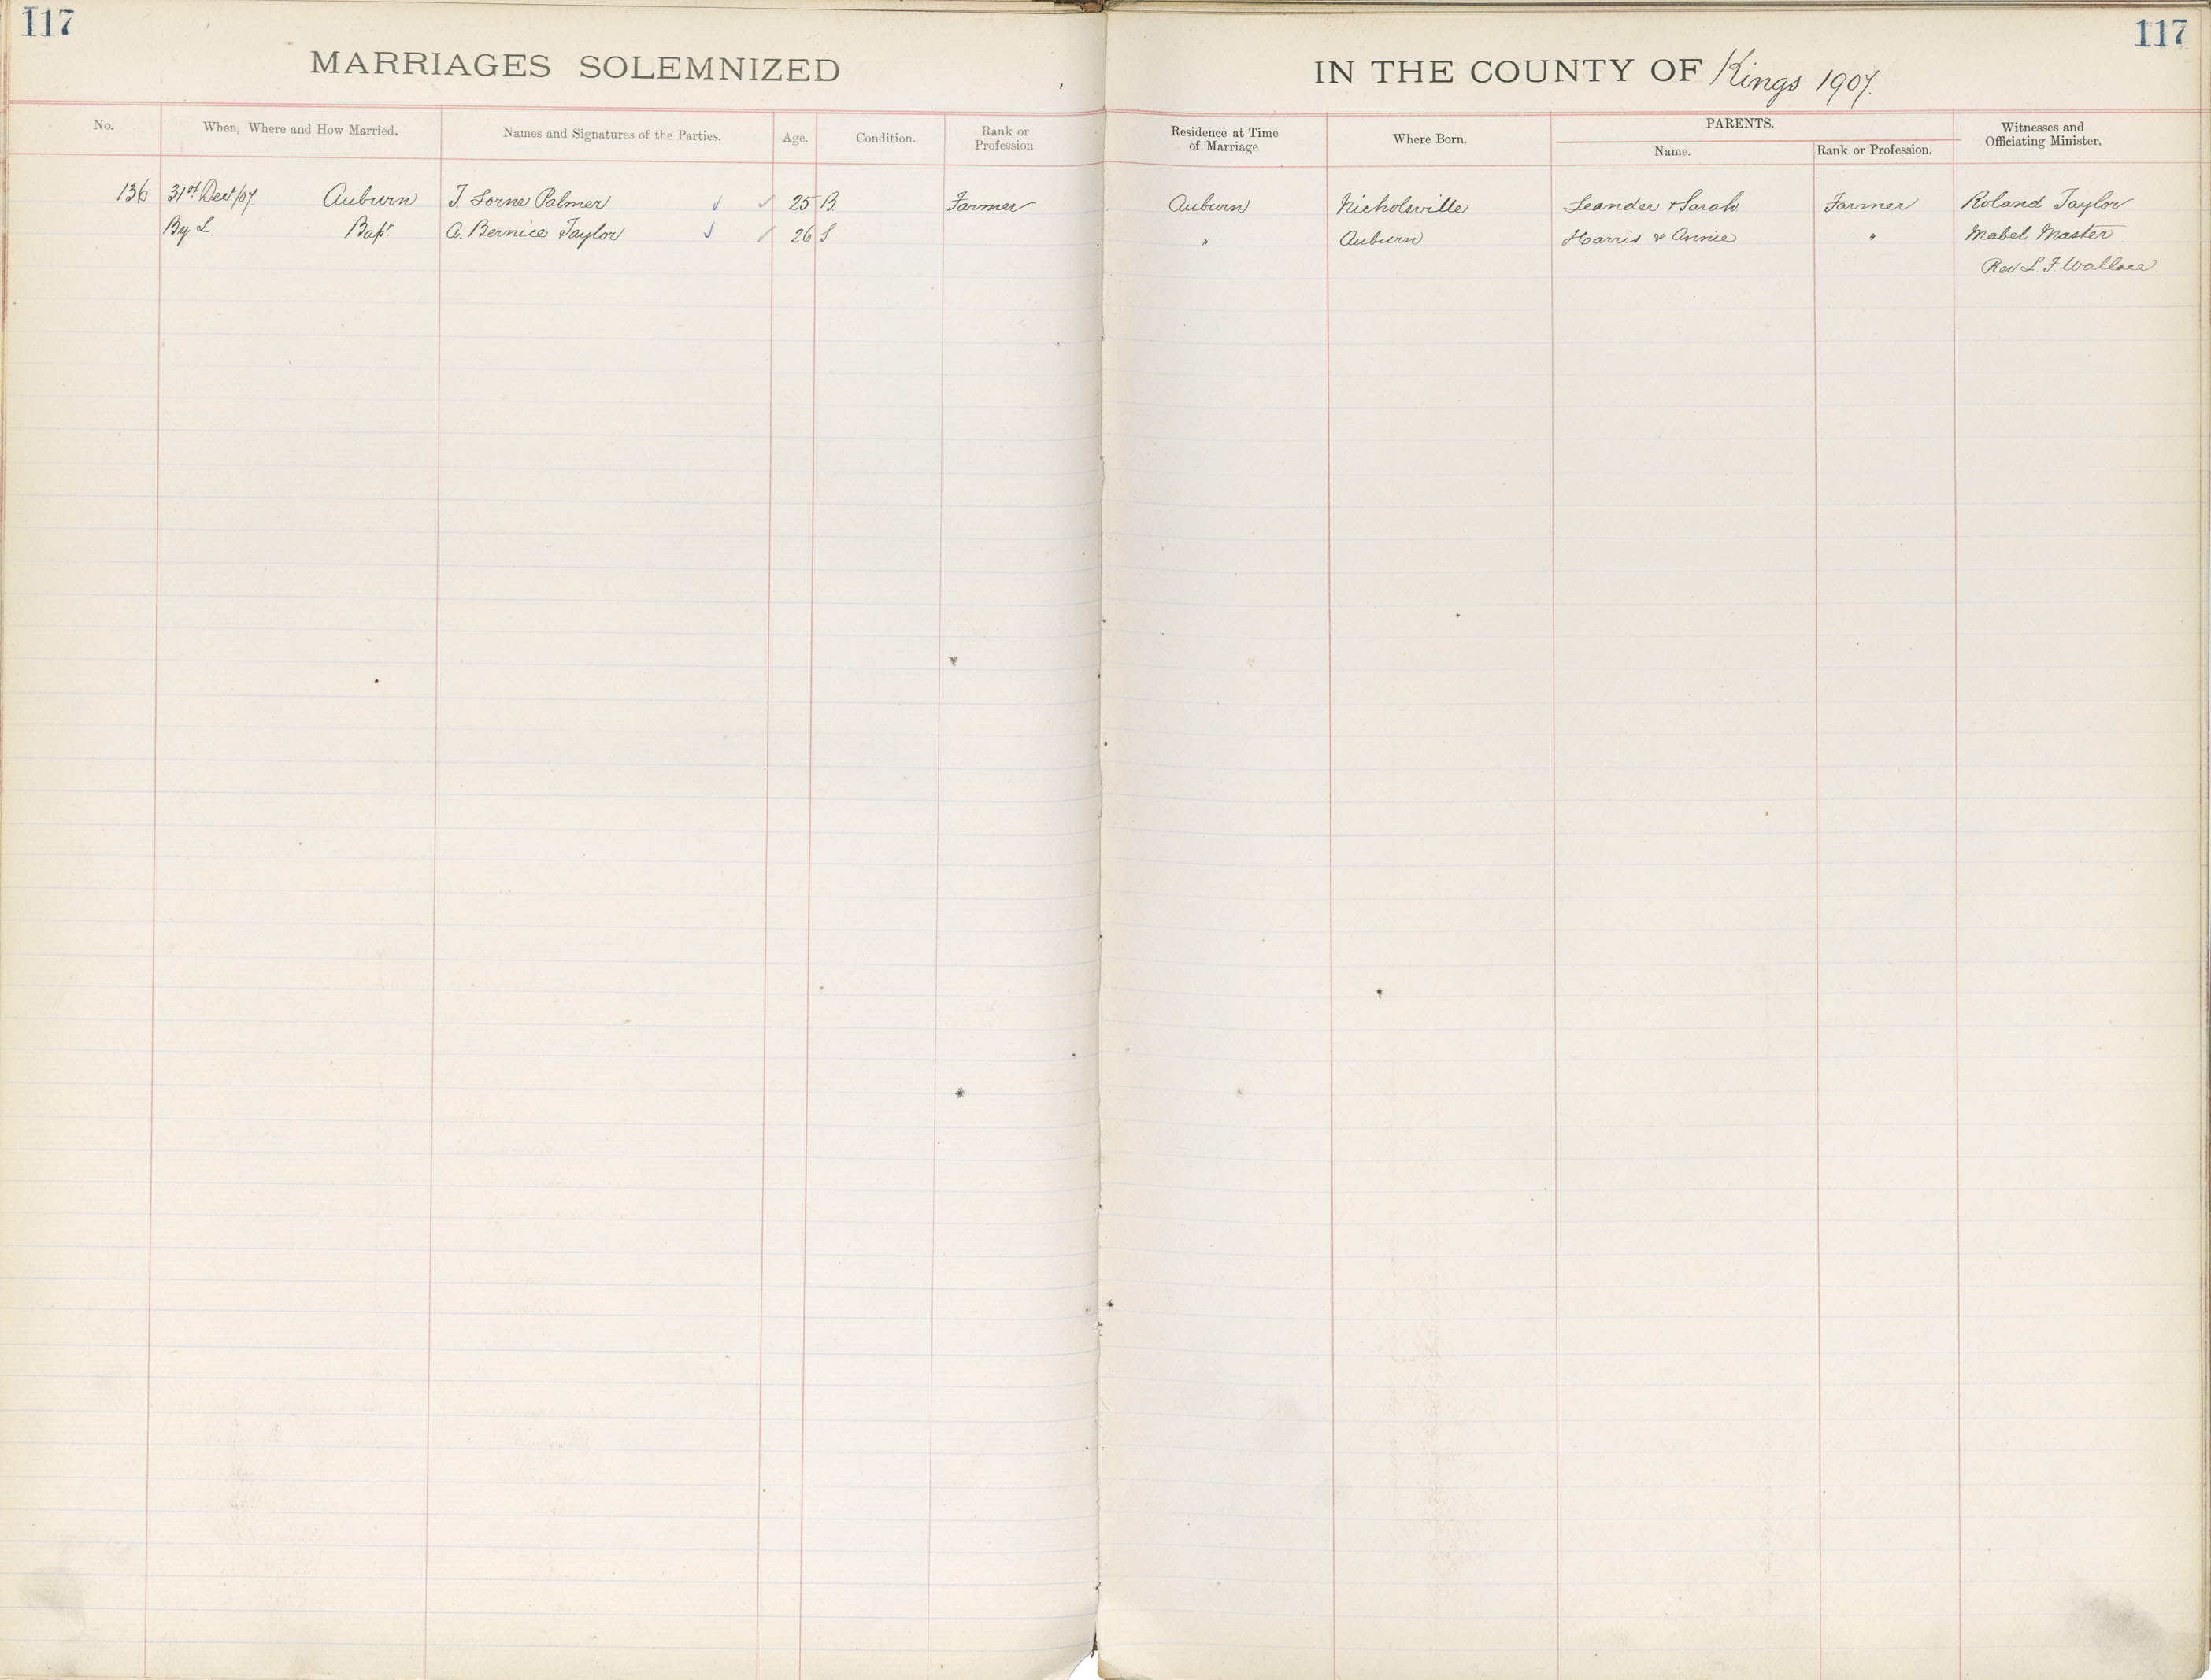 117
117
MARRIAGES SOLEMNIZED
IN THE COUNTY OF Kings 1907.
No.
When, Where and How Married.
Names and Signatures of the Parties.
Age.
Condition.
Rank or
Profession
Residence at Time
of Marriage
Where Born.
PARENTS.
Name.
Rank or Profession.
Witnesses and
Officiating Minister.
136 31st Dec/07. Auburn J. Lorne Palmer 25 B Farmer Auburn Nicholsville Leander & Sarah Farmer Roland Taylor
By L. Bapt. A. Bernice Taylor 26 S " Auburn Harris & Annie " Mabel Master
Rev L. F. Wallace